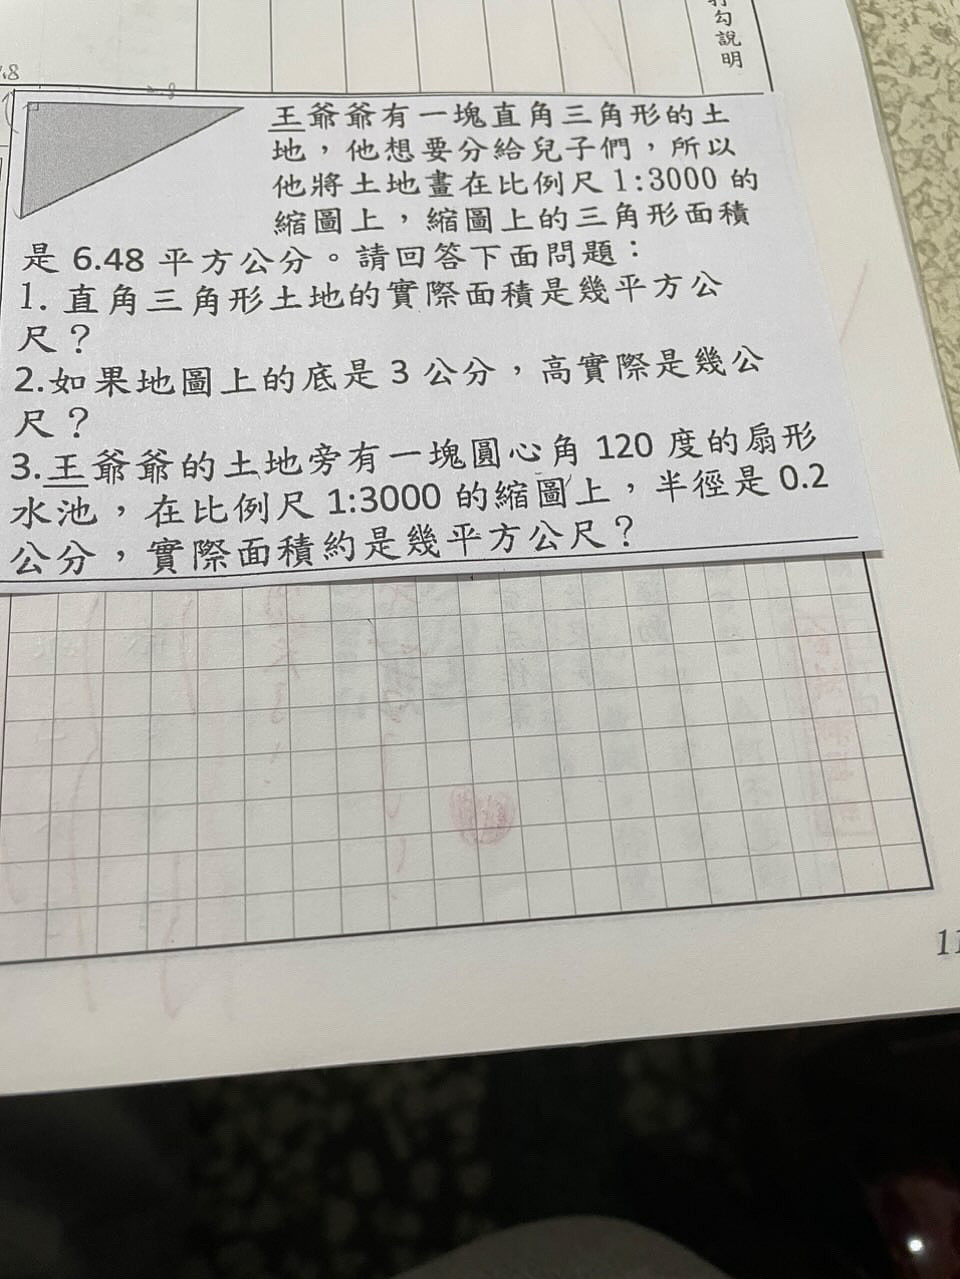 打勾說明
王爺爺有一塊直角三角形的土
地，他想要分給兒子們，所以
他將土地畫在比例尺 1:3000 的
縮圖上，縮圖上的三角形面積
是 6.48 平方公分。請回答下面問題：
1. 直角三角形土地的實際面積是幾平方公
尺？
2.如果地圖上的底是 3 公分，高實際是幾公
尺？
3.王爺爺的土地旁有一塊圓心角 120 度的扇形
水池，在比例尺 1:3000 的縮圖上，半徑是 0.2
公分，實際面積約是幾平方公尺？